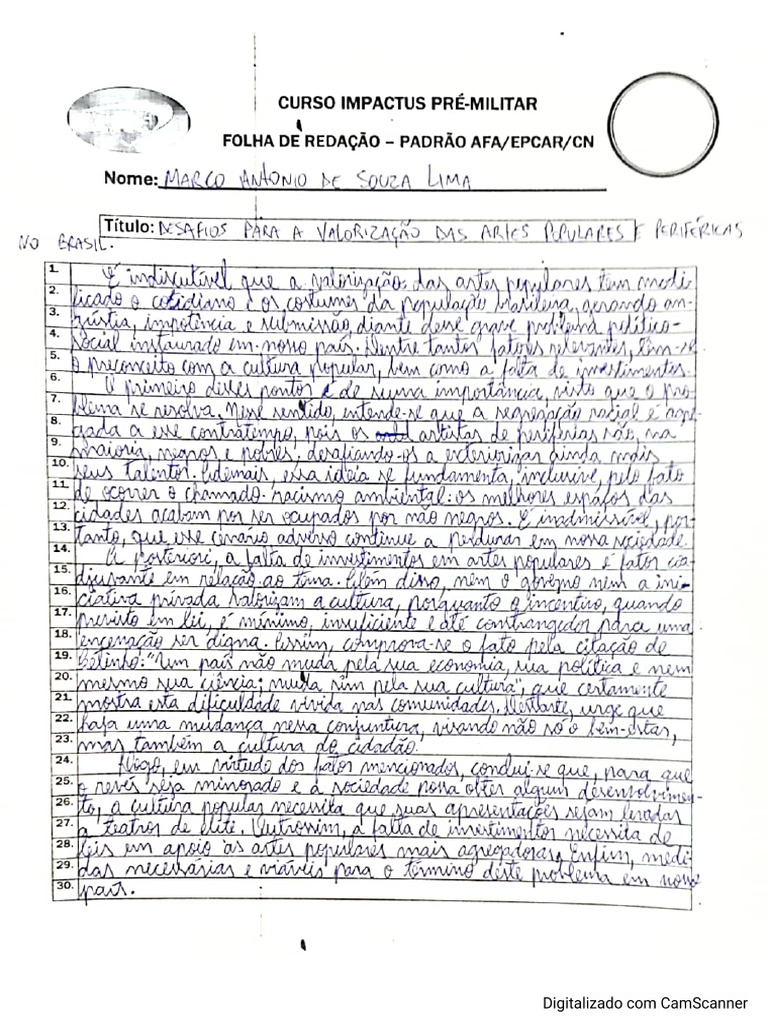 CURSO IMPACTUS PRÉ-MILITAR
FOLHA DE REDAÇÃO – PADRÃO AFA/EPCAR/CN
Nome: MARCO ANTONIO DE SOUZA LIMA
Título: DESAFIOS PARA A VALORIZAÇÃO DAS ARTES POPULARES E PERIFÉRICAS
NO BRASIL.
1. É indiscutível que a valorização das artes populares tem modi-
2. ficado o cotidiano e os costumes da população brasileira, gerando an-
3. gústia, impotência e submissão diante desse grave problema político-
4. social instaurado em nosso país. Dentre tantos fatores relevantes, têm-se
5. o preconceito com a cultura popular, bem como a falta de investimentos.
6. O primeiro desses pontos é de suma importância, visto que o pro-
7. blema se resolva. Nesse sentido, entende-se que a segregação racial é agre-
8. gada a esse contratempo, pois os artistas de periferias são, na
9. maioria, negros e pobres, desafiando-os a exteriorizar ainda mais
10. seus talentos. Ademais, essa ideia se fundamenta, inclusive, pelo fato
11. de ocorrer o chamado racismo ambiental: os melhores espaços das
12. cidades acabam por ser ocupados por não negros. É inadmissível, por-
13. tanto, que esse cenário adverso continue a perdurar em nossa sociedade.
14. A posteriori, a falta de investimentos em artes populares é fator coa-
15. djuvante em relação ao tema. Além disso, nem o governo nem a ini-
16. ciativa privada valorizam a cultura, porquanto o incentivo, quando
17. previsto em lei, é mínimo, insuficiente e até constrangedor para uma
18. encenação ser digna. Assim, comprova-se o fato pela citação de
19. Betinho: "Um país não muda pela sua economia, sua política e nem
20. mesmo sua ciência; muda sim pela sua cultura", que certamente
21. mostra esta dificuldade vivida nas comunidades. Destarte, urge que
22. haja uma mudança nessa conjuntura, visando não só o bem-estar,
23. mas também a cultura do cidadão.
24. Logo, em virtude dos fatos mencionados, conclui-se que, para que
25. o revés seja minorado e a sociedade possa obter algum desenvolvimen-
26. to, a cultura popular necessita que suas apresentações sejam levadas
27. a teatros de elite. Outrossim, a falta de investimentos necessita de
28. leis em apoio às artes populares mais agregadoras. Enfim, medi-
29. das necessárias e viáveis para o término deste problema em nosso
30. país.
Digitalizado com CamScanner